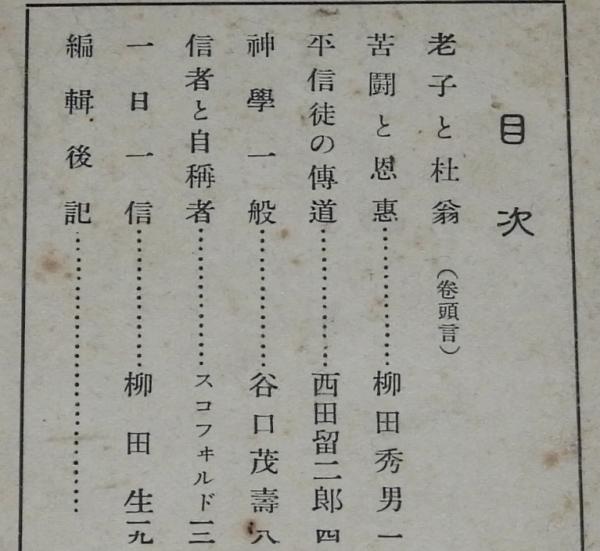 目次
老子と杜翁（卷頭言）
苦鬪と恩惠………………柳田秀男 一
平信徒の傳道………………西田留二郎 四
神學一般………………谷口茂壽 八
信者と自稱者………………スコフヰルド 一三
一日一信………………柳田生 一九
編輯後記………………………………